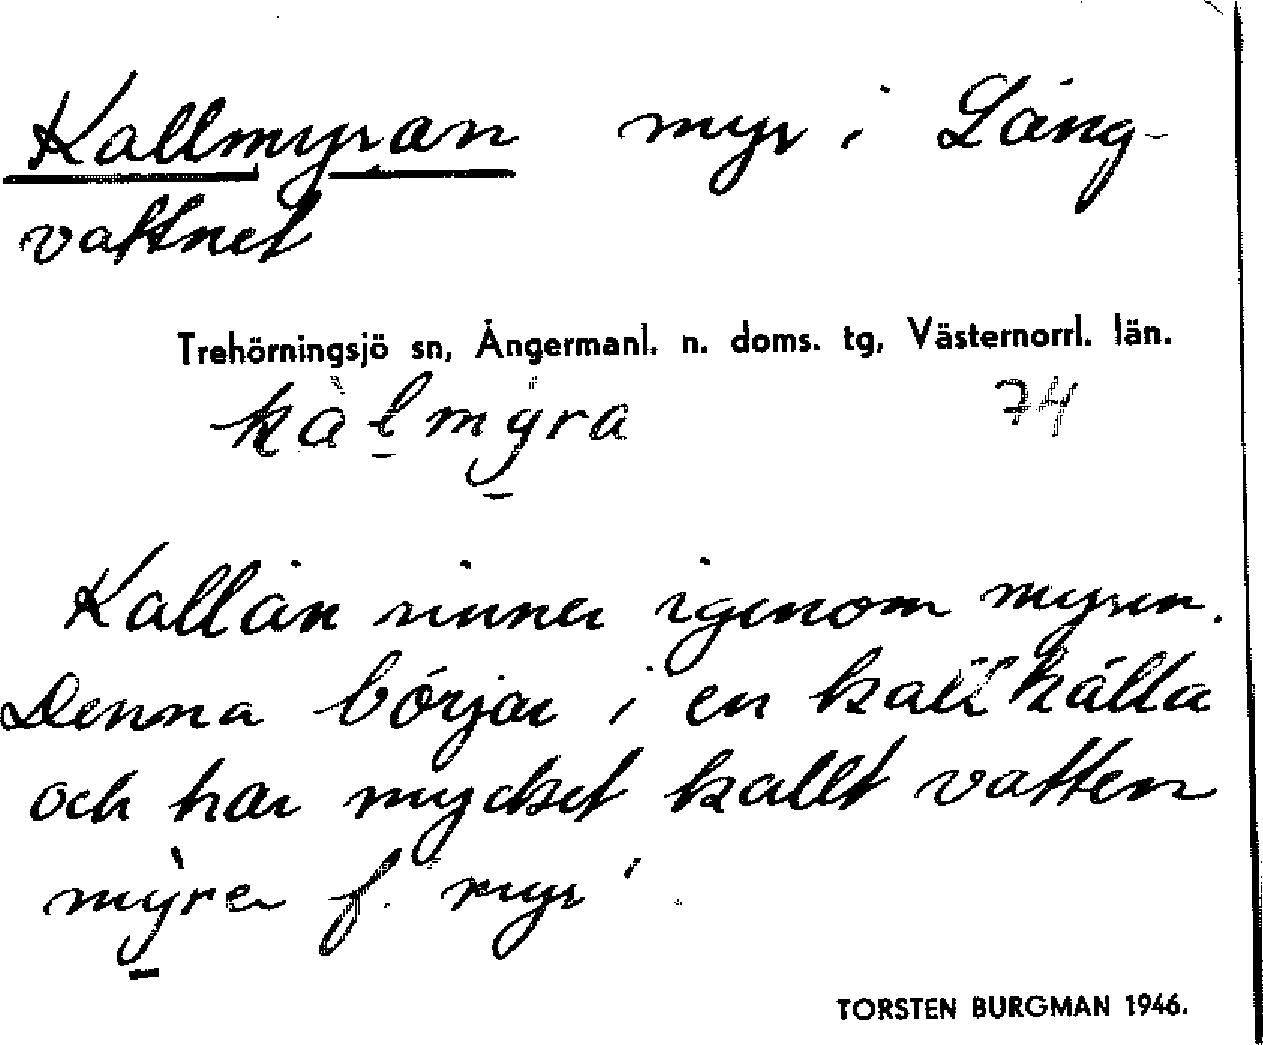 Kallmyran myr i Lång-
vattnet
Trehörningsjö sn, Ångermanl. n. doms. tg, Västernorrl. län.
kàlmy̱ra 74
Kallån rinner igenom myren.
Denna börjar i en kallkälla
och har mycket kallt vatten
mỳ̱ra f. 'myr'.
TORSTEN BURGMAN 1946.